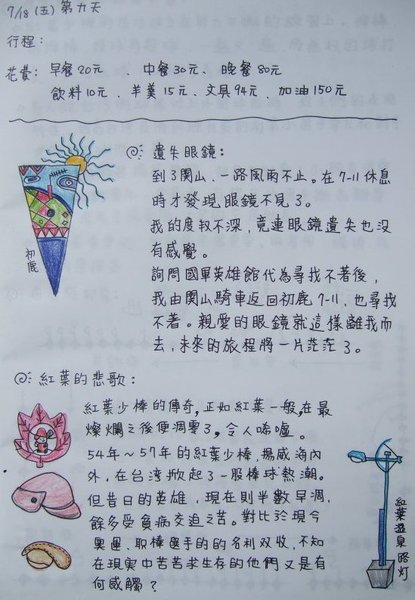 7/18 (五) 第九天
行程:
花費: 早餐20元 、 中餐30元、 晚餐80元
飲料10元、羊羹15元、文具94元、加油150元
遺失眼鏡:
到了関山,一路風雨不止。在7-11休息
時才發現眼鏡不見了。
我的度數不深,竟連眼鏡遺失也沒
有感覺。
詢問國軍英雄館代為尋找不著後,
我由関山騎車返回初鹿7-11,也尋找
不著。親愛的眼鏡就這樣離我而
去,未來的旅程將一片茫茫了。
初鹿
紅葉的悲歌:
紅葉少棒的傳奇,正如紅葉一般,在最
燦爛之後便凋零了,令人唏噓。
54年~57年的紅葉少棒,揚威海內
外,在台灣掀起了一股棒球熱潮。
但昔日的英雄,現在則半數早凋,
餘多受貧病交迫之苦。對比於現今
奧運、職棒選手的的名利双收,不知
在現實中苦苦求生存的他們又是有
何感觸?
紅葉温泉路灯